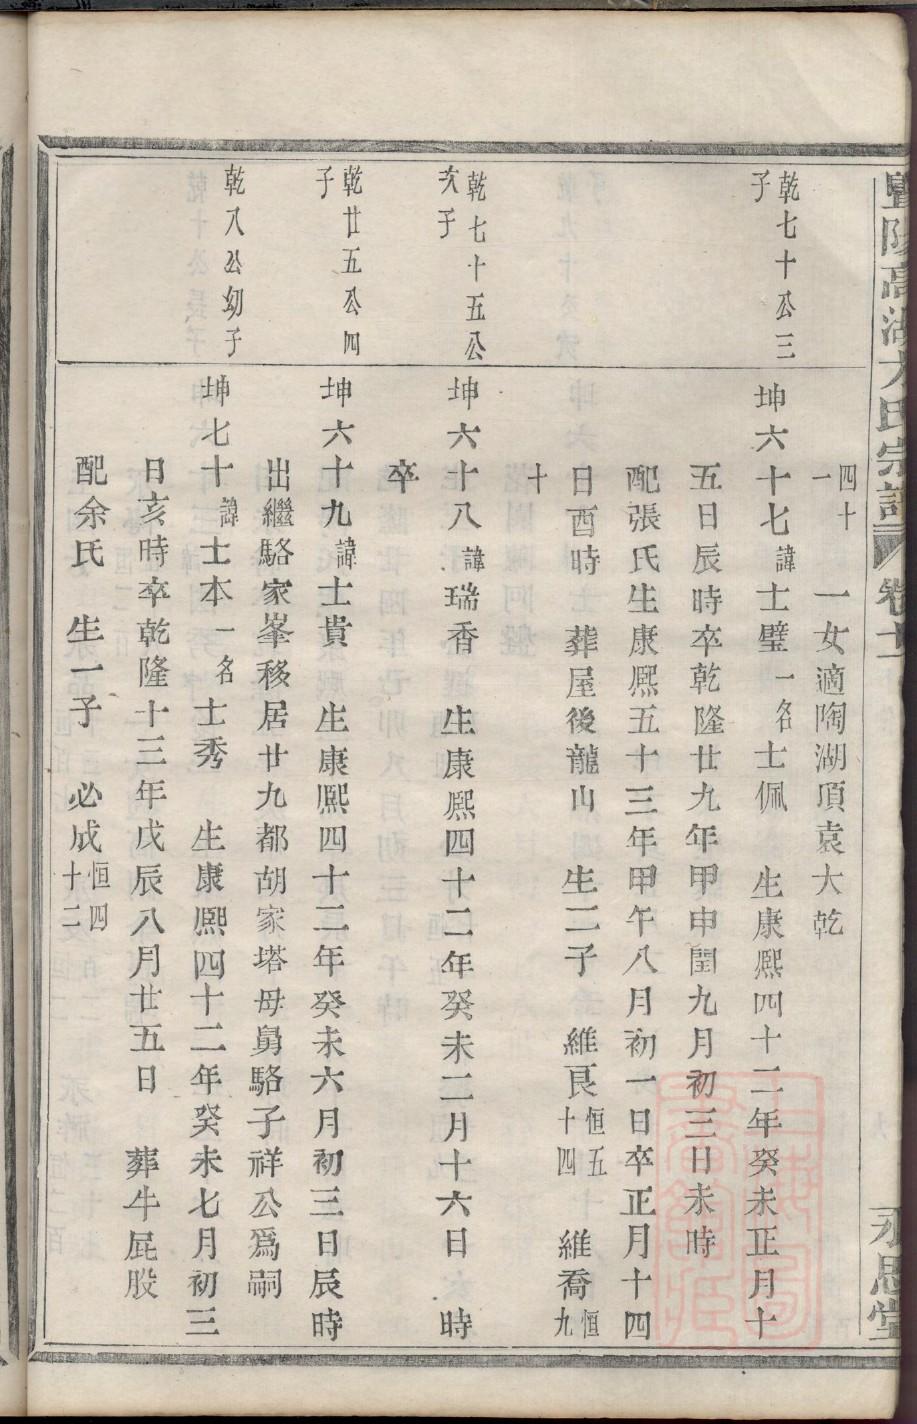 暨陽高湖方氏宗譜 卷十二 永思堂
四十一 一女適陶湖頂袁大乾
乾七十公三子
坤六十七諱士璧一名士佩 生康熙四十二年癸未正月十
五日辰時卒乾隆廿九年甲申閏九月初三日未時
配張氏生康熙五十三年甲午八月初一日卒正月十四
日酉時 葬屋後龍山 生二子 維艮恒五十四 維喬恒九
十
乾七十五公次子
坤六十八諱瑞香 生康熙四十二年癸未二月十六日 時
卒
乾廿五公四子
坤六十九諱士貴 生康熙四十二年癸未六月初三日辰時
出繼駱家峯移居廿九都胡家塔母舅駱子祥公爲嗣
乾八公幼子
坤七十諱士本一名士秀 生康熙四十二年癸未七月初三
日亥時卒乾隆十三年戊辰八月廿五日 葬牛屁股
配余氏 生一子 必成恒四十二